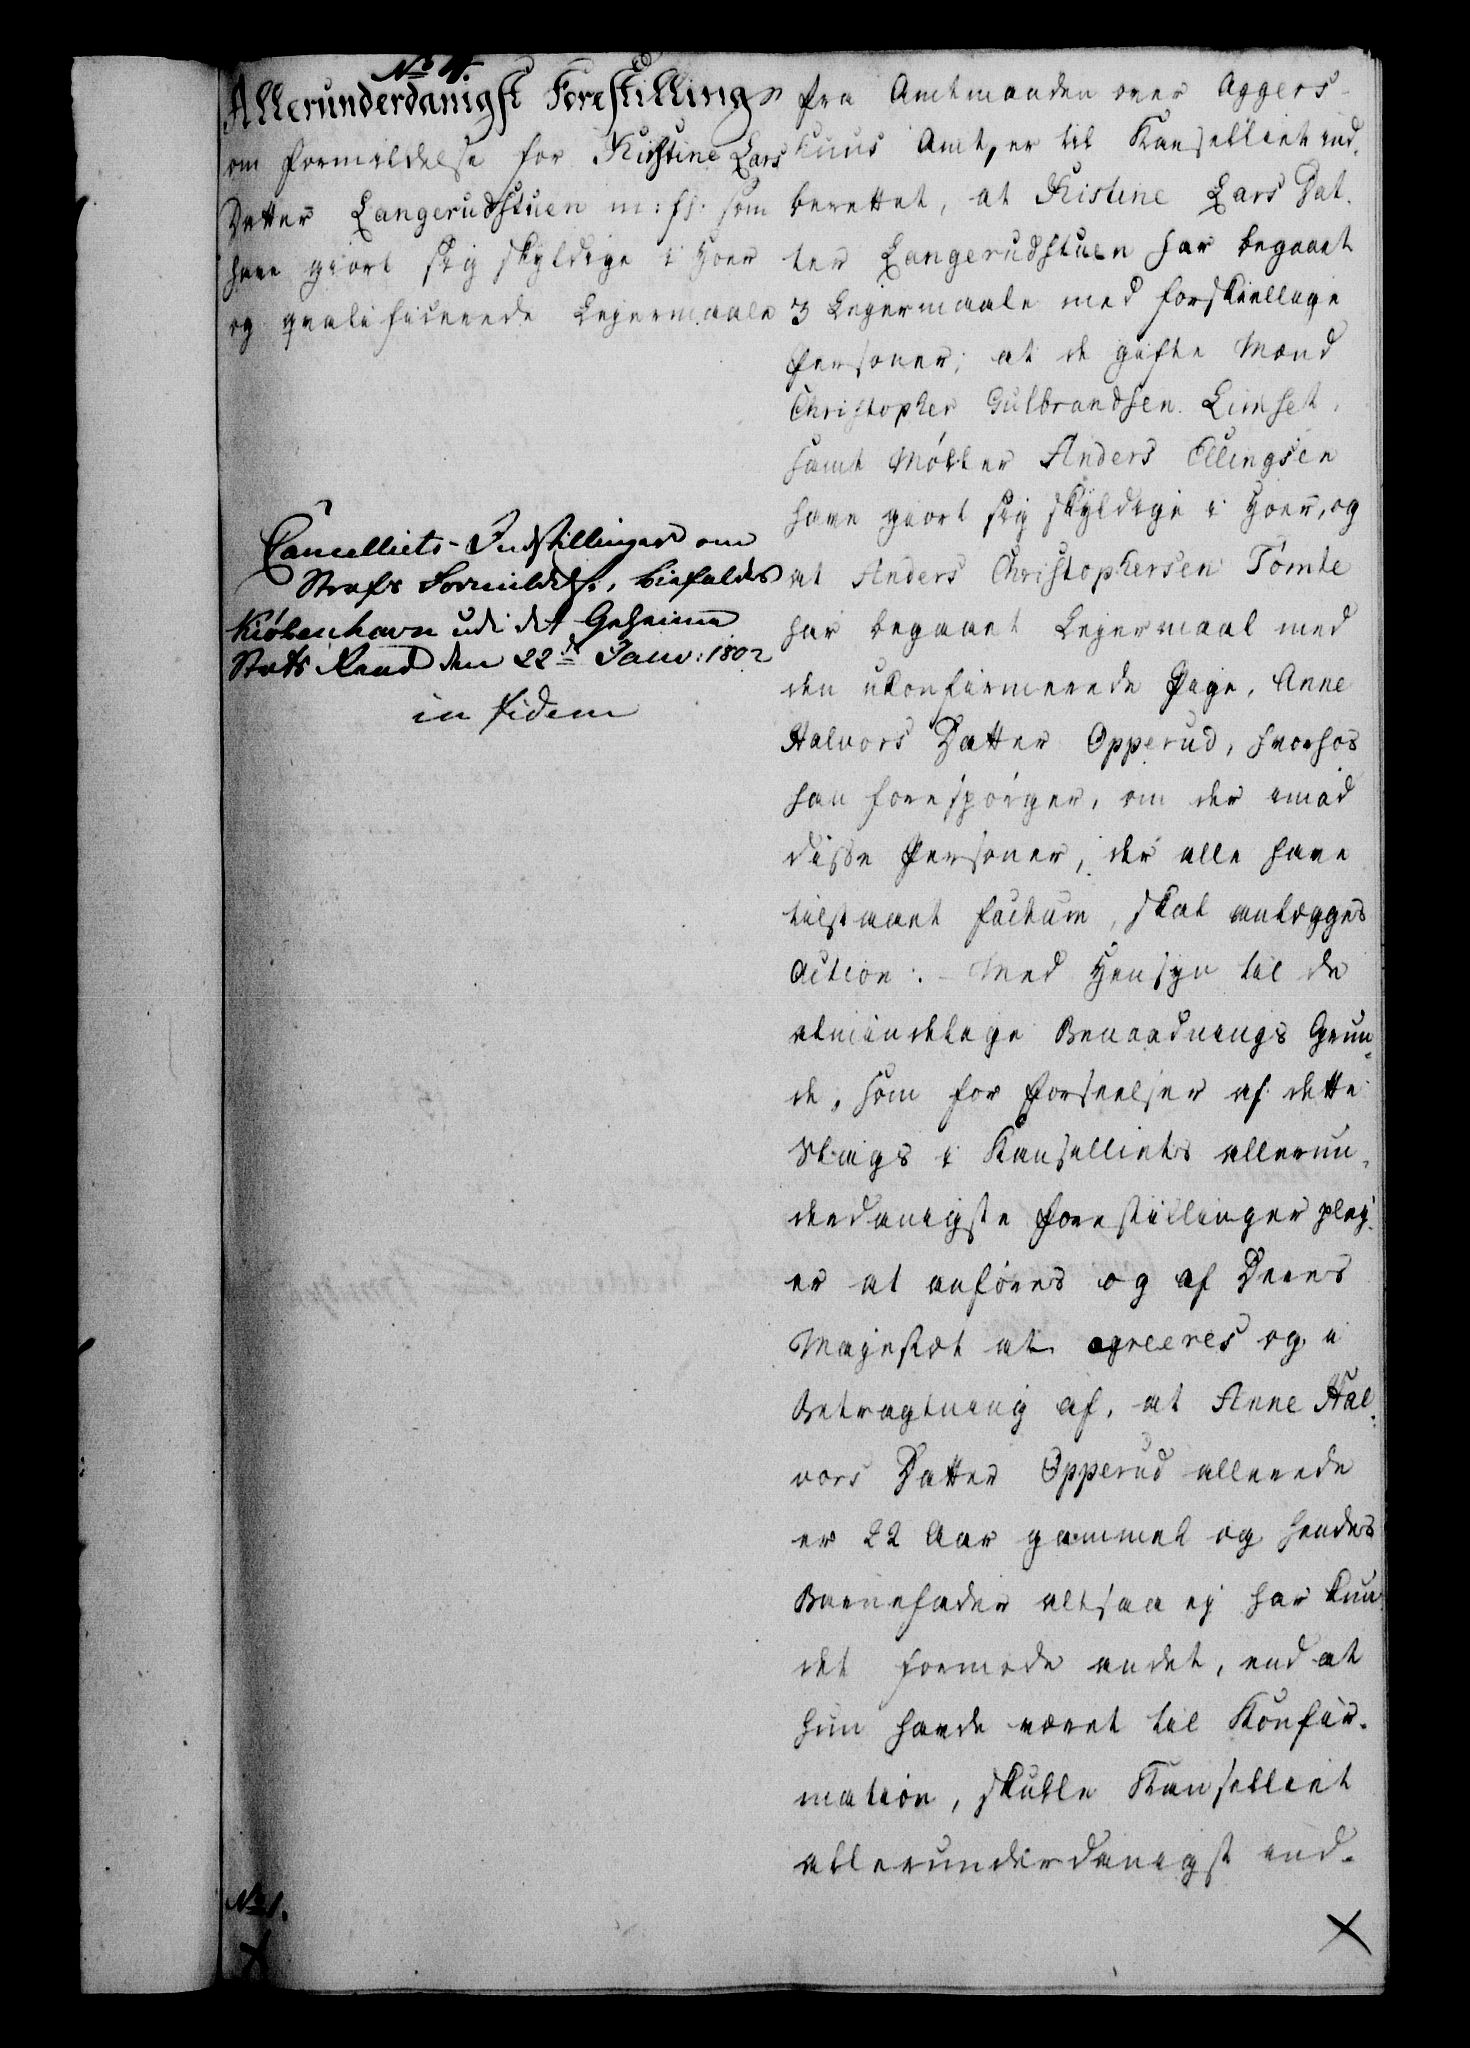 No 4.
Allerunderdanigst Forestilling
om formildelse for Kistine Lars
Datter Langerudstuen m: fl. som
have giort sig skyldige i Hoer
og qvalificerede Lejermaale
Cancelliets-Indstillinger om
Strafs Formildelse, biefaldes
Kiöbenhavn udi det Geheime
Stats Raad den 22de Janv: 1802
in fidem
No 1.
fra Amtmanden over Aggers-
huus Amt, er til Kanselliet ind-
berettet, at Kistine Lars Dat-
ter Langerudstuen har begaaet
3 Lejermaale med forskiellige
Personer; at de gifte Mænd
Christopher Gulbrandsen Limset,
samt Møller Anders Ellingsen
have giort sig skyldige i Hoer, og
at Anders Christophersen Tömte
har begaaet Lejermaal med
den ukonfirmerede Pige, Anne
Halvors Datter Opperud, hvorhos
han forespörger, om der imod
disse Personer, der alle have
tilstaaet factum, skal anlægges
Action. - Med Hensyn til de
almindelige Benaadnings Grun-
de, som for Forseelser af dette
Slags i Kanselliets allerun-
derdanigste Forestillinger plej-
er at anföres og af Deres
Majestæt at agreeres og i
Betragtning af, at Anne Hal-
vors Datter Opperud allerede
er 22 Aar gammel og hendes
Barnefader altsaa ej har kun-
det formode andet, end at
hun havde været til Konfir-
mation, skulle Kanselliet
allerunderdanigst ind-